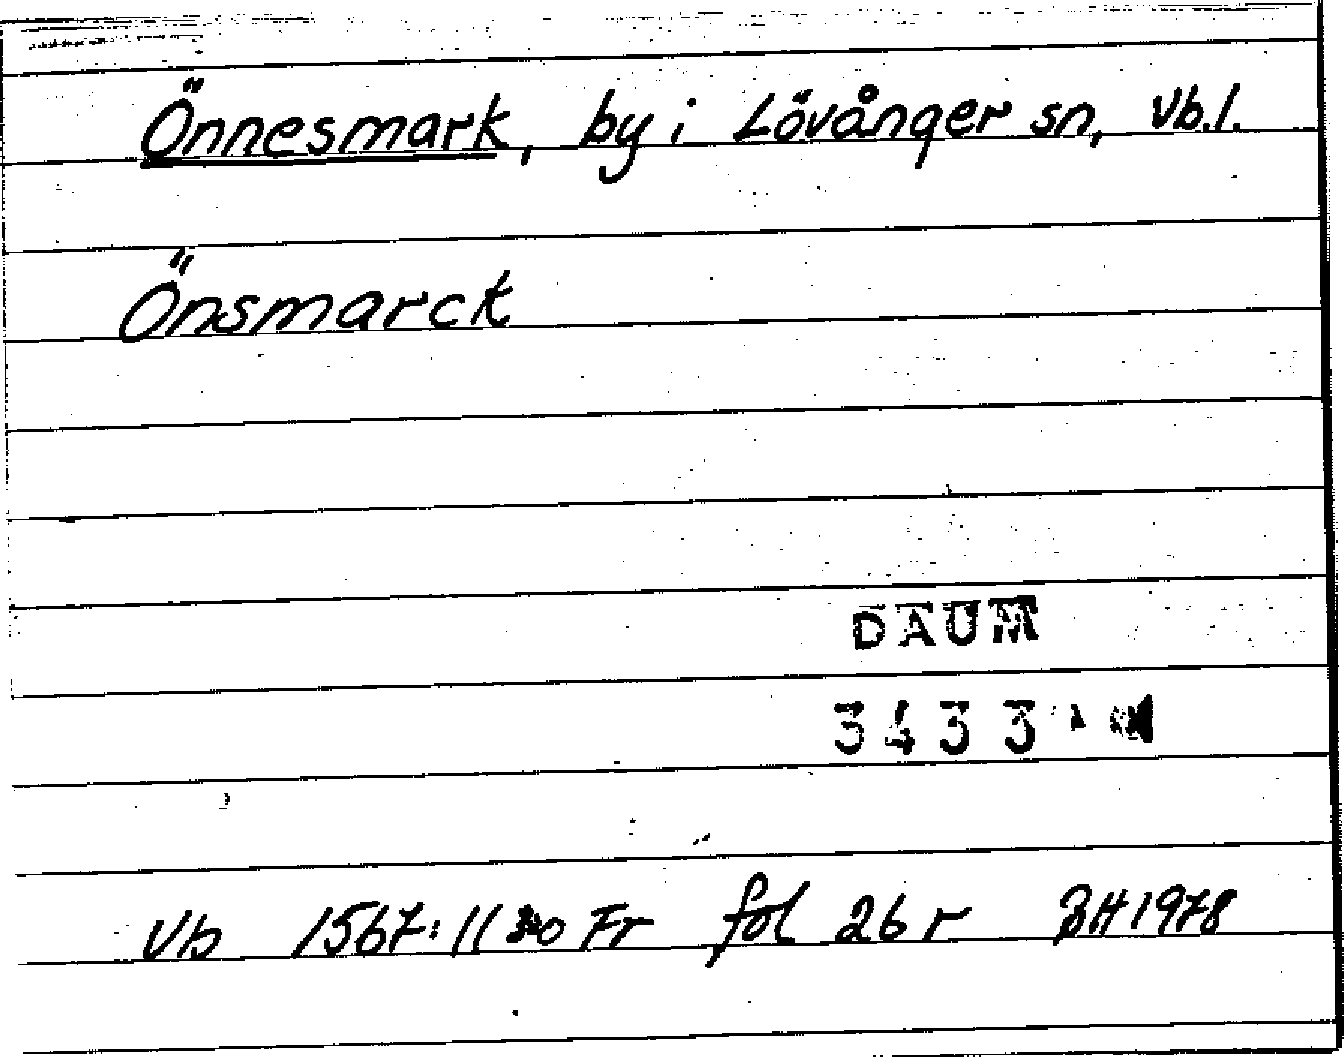 Önnesmark, by i Lövånger sn, Vb.l.
Önsmarck
DAUM
3433
Vb 1567: 11 Fr fol 26 r BH 1978